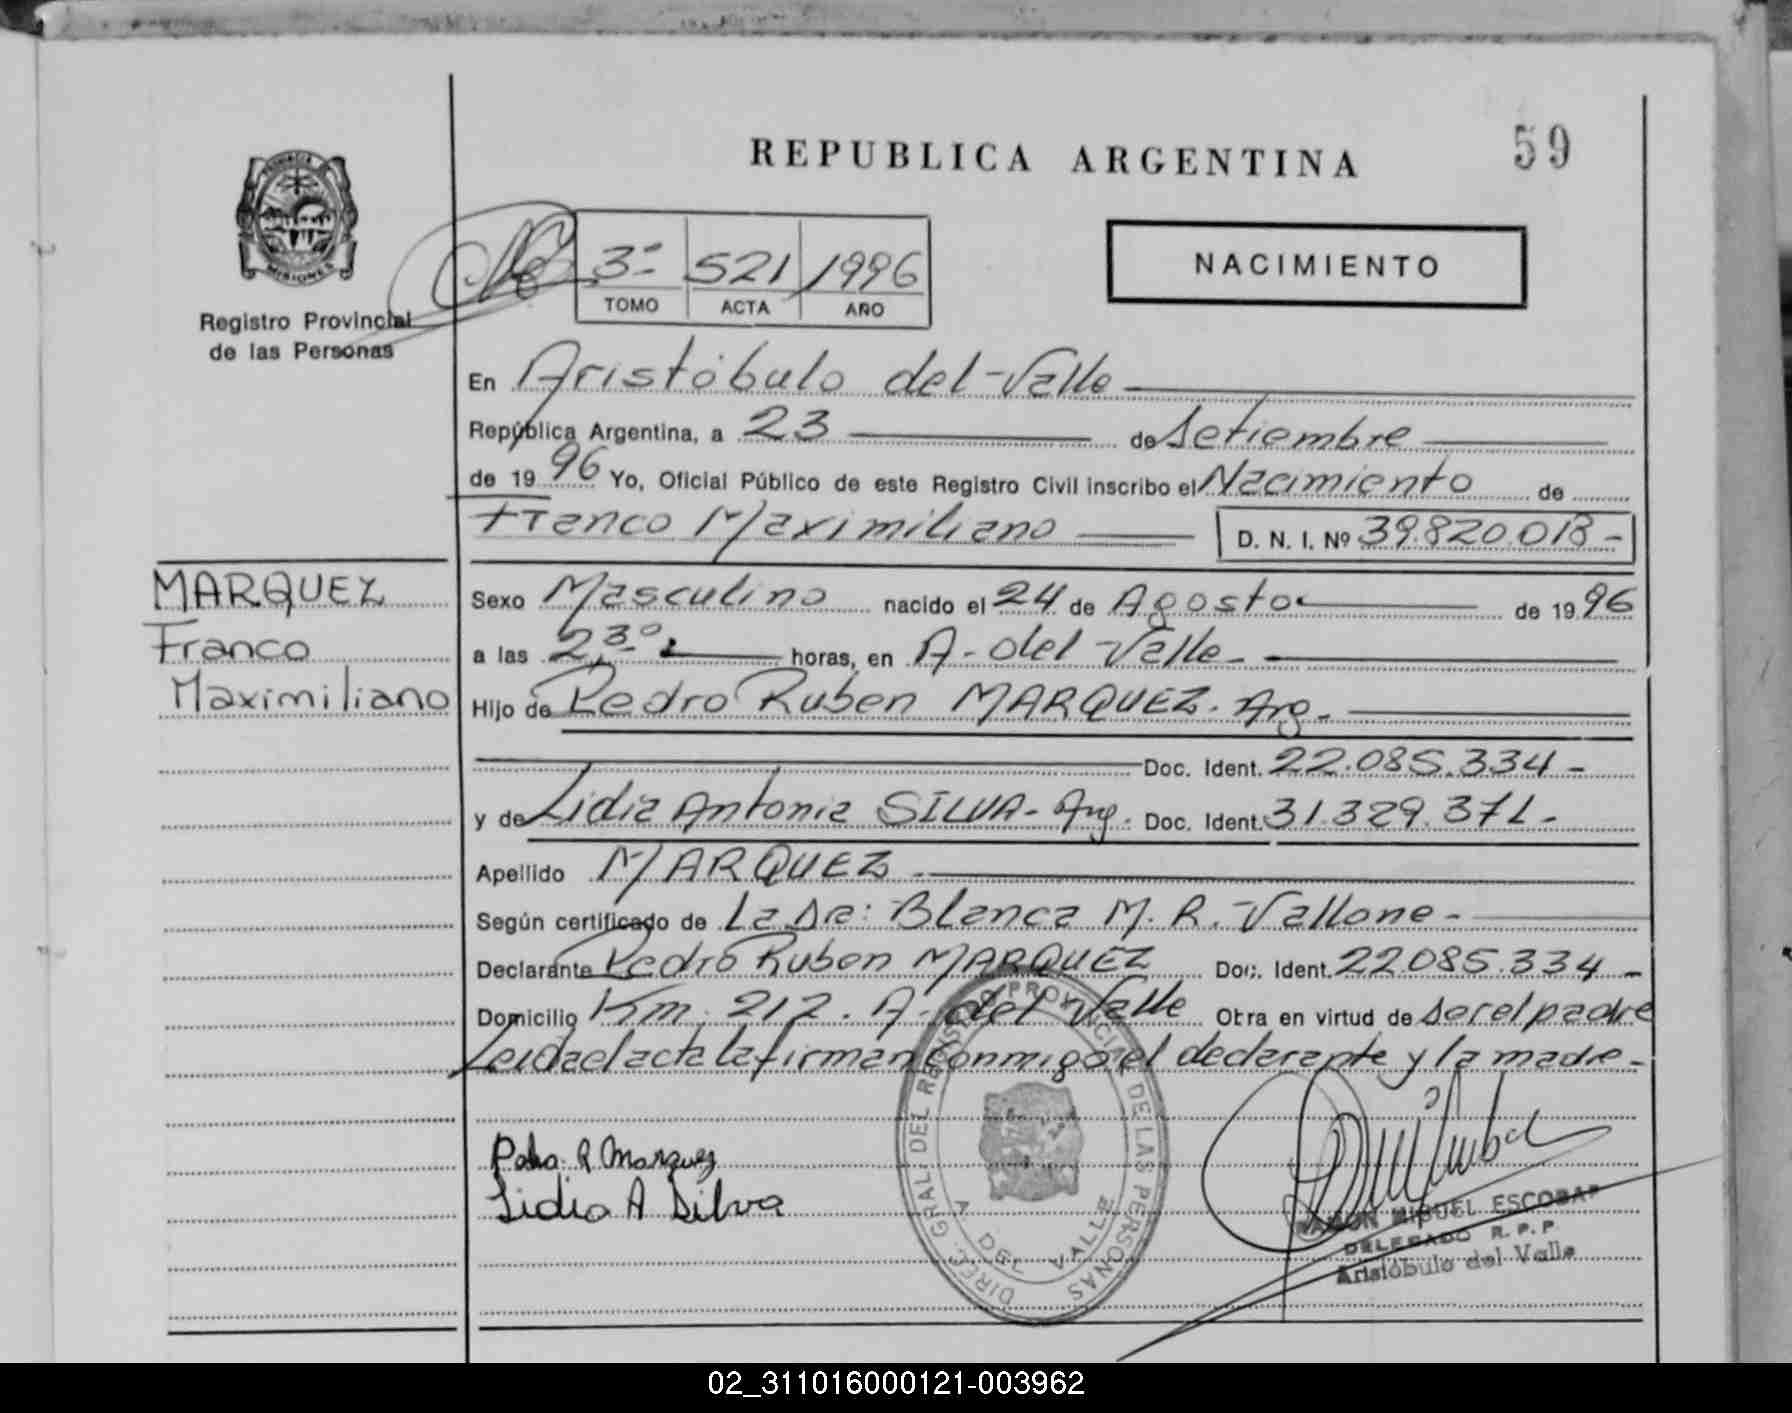 REPUBLICA ARGENTINA
59
PROVINCIA DE
MISIONES
Registro Provincial
de las Personas
3º 521 1996
TOMO ACTA AÑO
NACIMIENTO
En Aristóbulo del Valle
República Argentina, a 23 de Setiembre
de 1996 Yo, Oficial Público de este Registro Civil inscribo el Nacimiento de
Franco Maximiliano D. N. I. Nº 39.820.018-
MARQUEZ
Franco
Maximiliano
Sexo Masculino nacido el 24 de Agosto de 1996
a las 23º horas, en A. del Valle-
Hijo de Pedro Ruben MARQUEZ. Arg-
Doc. Ident. 22.085.334-
y de Lidia Antonia SILVA- Arg. Doc. Ident. 31.329.371-
Apellido MARQUEZ
Según certificado de La Dra: Blanca M. R. Vallone-
Declarante Pedro Ruben MARQUEZ Doc. Ident. 22085.334-
Domicilio Km. 212. A. del Valle Otra en virtud de ser el padre
Leida el acta la firman conmigo el declarante y la madre-
R Marquez
Lidia A Silva
DIREC. GRAL. DEL REGISTRO PROVINCIAL DE LAS PERSONAS
A. DEL VALLE
RAMON MIGUEL ESCOBAR
DELEGADO R. P. P.
Aristóbulo del Valle
02_311016000121-003962